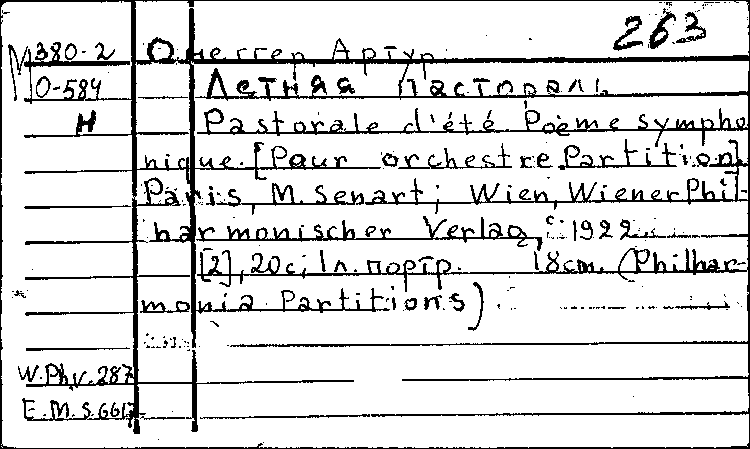 263
М 380-2 Онеггер, Артур.
О-584 Летняя пастораль.
Н Pastorale d'été. Poème sympho
nique. [Paur orchestre. Partition]
Paris, M. Senart; Wien, Wiener Phil-
harmonischer Verlag, c 1922.
[2], 20 с; 1 л. портр. 18 cm. (Philhar-
monia Partitions).
W. Ph. V. 287
E. M. S. 6617